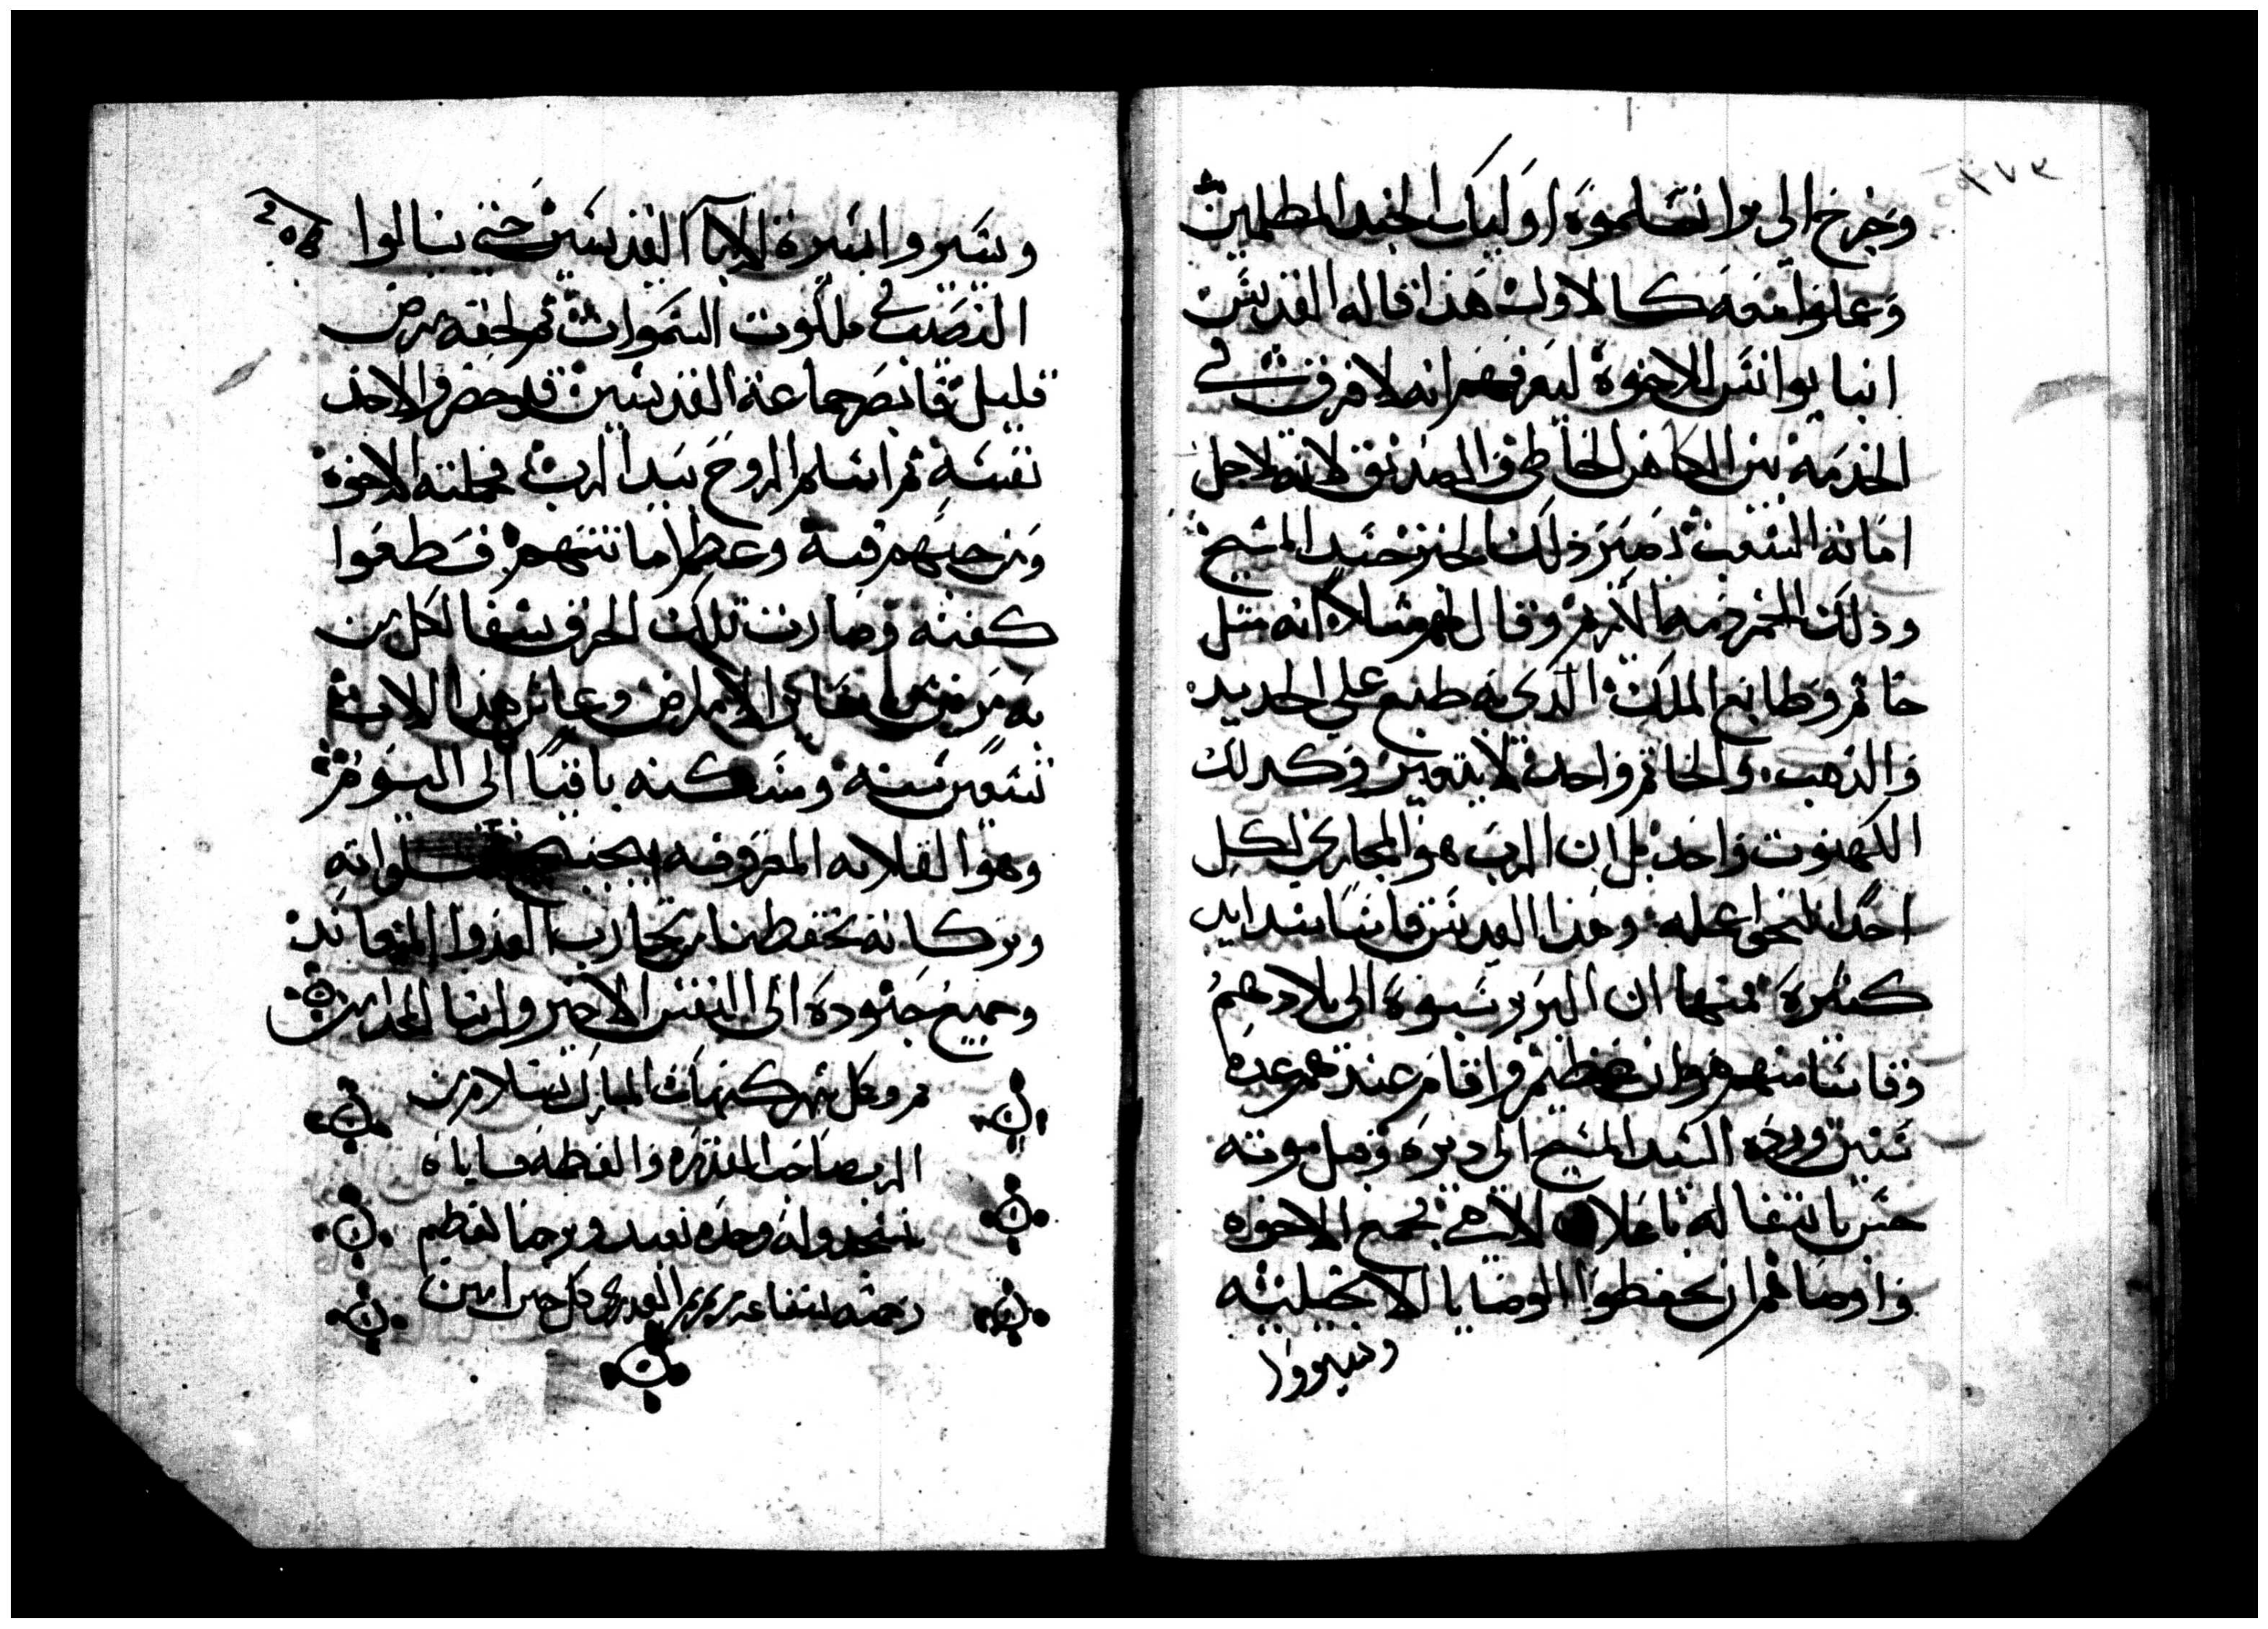 ١٧٣
وخرج الى برا تسلموه اوليك الجند المظلمين
وعملوا معه كالاول هذا قاله القديس
انبا يوانس للاخوة ليعرفهم انه لا فرق في
الخدمة بين الكاهن الخاطي والصديق لانه لاجل
امانة الشعب يصير ذلك الخبز جسد المسيح
وذلك الخمر دمه الاكرم وقال لهم مثلا انه مثل
خاتم وطابع الملك الدي به طبع علي الحديد
والدهب والخاتم واحد لا يتغير وكدلك
الكهنوت واحد بل ان الرب هو المجازي لكل
احدا كنحو عمله وهذا القديس قاسا شدايد
كثيرة منها ان البربر سبوه الى بلادهم
وقاسا منهم هوان عظيم واقام عندهم عدة
سنين ورده السيد المسيح الى ديره وقبل موته
خبر بانتقاله باعلان الاهي فجمع الاخوه
واوصاهم ان يحفظوا الوصايا الانجيليه
ويسيروا
ويسيروا سيرة الابا القديسين حتى ينالوا
النصيب في ملكوت السموات ثم لحقه مرض
قليل فابصر جماعة القديسين قد حضروا لاخذ
نفسه ثم اسلم الروح بيد الرب فحملته الاخوة
ومن حبهم فيه وعظم امانتهم فقطعوا
كفنه وصارت تلك الخرق شفا لكل من
به مرض من ساير الامراض وعاش هذا الاب
تسعين سنه ومسكنه باقيا الى اليوم
وهو القلايه المعروفه بيحنس صلواته
وبركاته تحفظنا من تجارب العدوا المعاند
وجميع جنوده الى النفس الاخير امين
تم وكمل شهر كيهك المبارك بسلام من
الرب صاحب المقدره والعظمه فاياه
نسجد وله وحده نعبد ونرجوا لعظيم
رحمته بشفاعة مريم العدرى كل حين امين